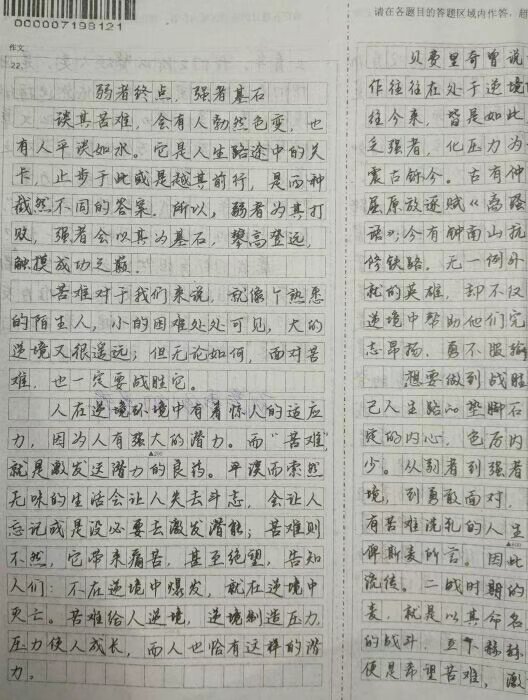 000007198121
请在各题目的答题区域内作答，
作文
22.
弱者终点，强者基石
谈其苦难，会有人勃然色变，也
有人平淡如水。它是人生路途中的关
卡，止步于此或是越其前行，是两种
截然不同的答案。所以，弱者为其打
败，强者会以其为基石，攀高登远，
触摸成功之巅。
苦难对于我们来说，就像个熟悉
的陌生人，小的困难处处可见，大的
逆境又很遥远；但无论如何，面对苦
难，也一定要战胜它。
人在逆境环境中有着惊人的适应
力，因为人有强大的潜力。而“苦难”
▲200
就是激发这潜力的良药。平淡而索然
无味的生活会让人失去斗志，会让人
忘记或是没必要去激发潜能；苦难则
不然，它带来痛苦，甚至绝望，告知
人们：不在逆境中爆发，就在逆境中
灭亡。苦难给人逆境，逆境制造压力，
压力使人成长，而人也恰有这样的潜
力。
贝费里奇曾说
作往往在处于逆境
往今来，皆是如此
乏强者，化压力为
震古烁今。古有仲
屈原放逐赋《离骚
语》；今有钟南山抗
修铁路，无一例外
就的英雄，却不仅
逆境中帮助他们完
志昂扬，勇不服输
想要做到战胜
己人生路的垫脚石
定的内心，色厉内
少。从弱者到强者
境，到勇敢面对，
有苦难洗礼的人生
▲600
俾斯麦所言。因此
流传。二战时期的
麦，就是以其命名
的战斗，
便是希望苦难，激